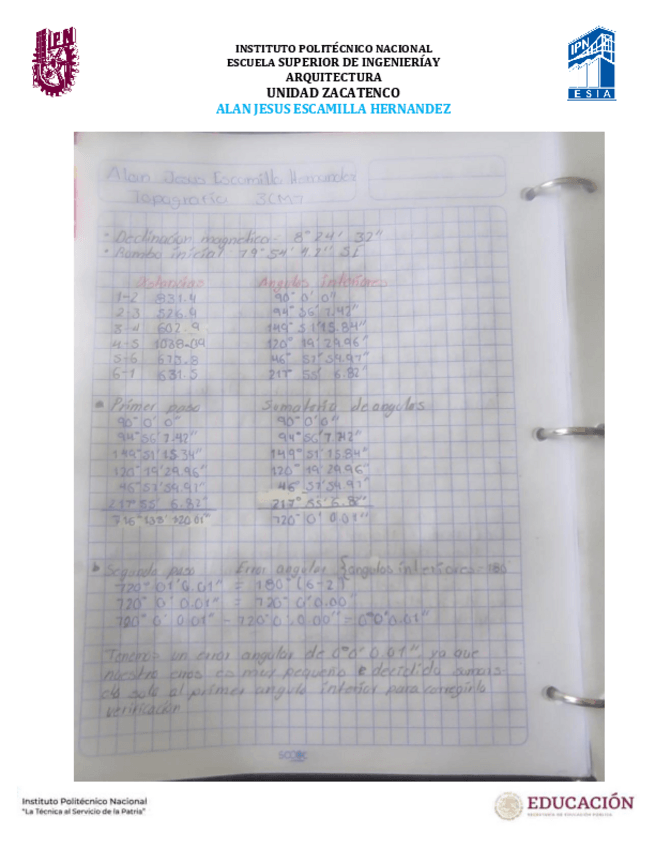 IPN
INSTITUTO POLITÉCNICO NACIONAL
ESCUELA SUPERIOR DE INGENIERÍAY
ARQUITECTURA
UNIDAD ZACATENCO
ALAN JESUS ESCAMILLA HERNANDEZ
IPN
ESIA
Alan Jesus Escamilla Hernandez
Topografía 3CM7
• Declinacion magnetica = 8° 24' 32"
• Rumbo inicial 79° 54' SE
Distancias Angulos interiores
1-2 831.4 90° 0' 0"
2-3 526.4 94° 56' 7.42"
3-4 602.9 149° 51' 15.84"
4-5 1038.09 120° 19' 29.96"
5-6 673.8 46° 57' 59.97"
6-1 631.5 217° 55' 6.82"
• Primer paso Sumatoria de angulos
90° 0' 0" 90° 0' 0"
94° 56' 7.42" 94° 56' 7.42"
149° 51' 15.84" 149° 51' 15.84"
120° 19' 29.96" 120° 19' 29.96"
46° 57' 59.97" 46° 57' 59.97"
217° 55' 6.82" 217° 55' 6.82"
716° 120.01" 720° 0' 0.01"
• Segundo paso Error angular angulos interiores = 180°
720° 01' 0.01" = 180° (6-2)
720° 0' 0.01" = 720° 0' 0.00"
720° 0' 0.01" - 720° 0' 0.00" = 0° 0' 0.01"
Tenemos un error angular de 0° 0' 0.01", ya que
nuestro error es muy pequeño e decidido
solo al primer angulo interior para corregir la
verificación
Instituto Politécnico Nacional
"La Técnica al Servicio de la Patria"
EDUCACIÓN
SECRETARÍA DE EDUCACIÓN PÚBLICA